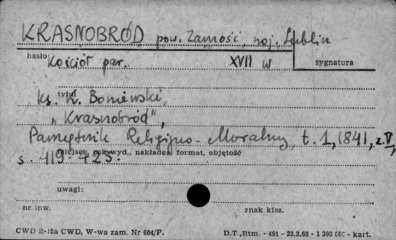 KRASNOBRÓD pow. Zamość, woj. Lublin
hasło Kościół par. XVII w sygnatura
tytuł
ks. W. Boniewski,
„Krasnobród",
Pamiętnik Religijno-Moralny t. 1, 1841, z. V,
s. 419-423.
miejsce, rok wyd., nakładca, format, objętość
uwagi:
nr inw. znak klas.
CWD III-15a CWD, W-wa zam. Nr 604/P. D.T. „Btm. - 491 - 23.2.60 - 1 300 000 - kart.